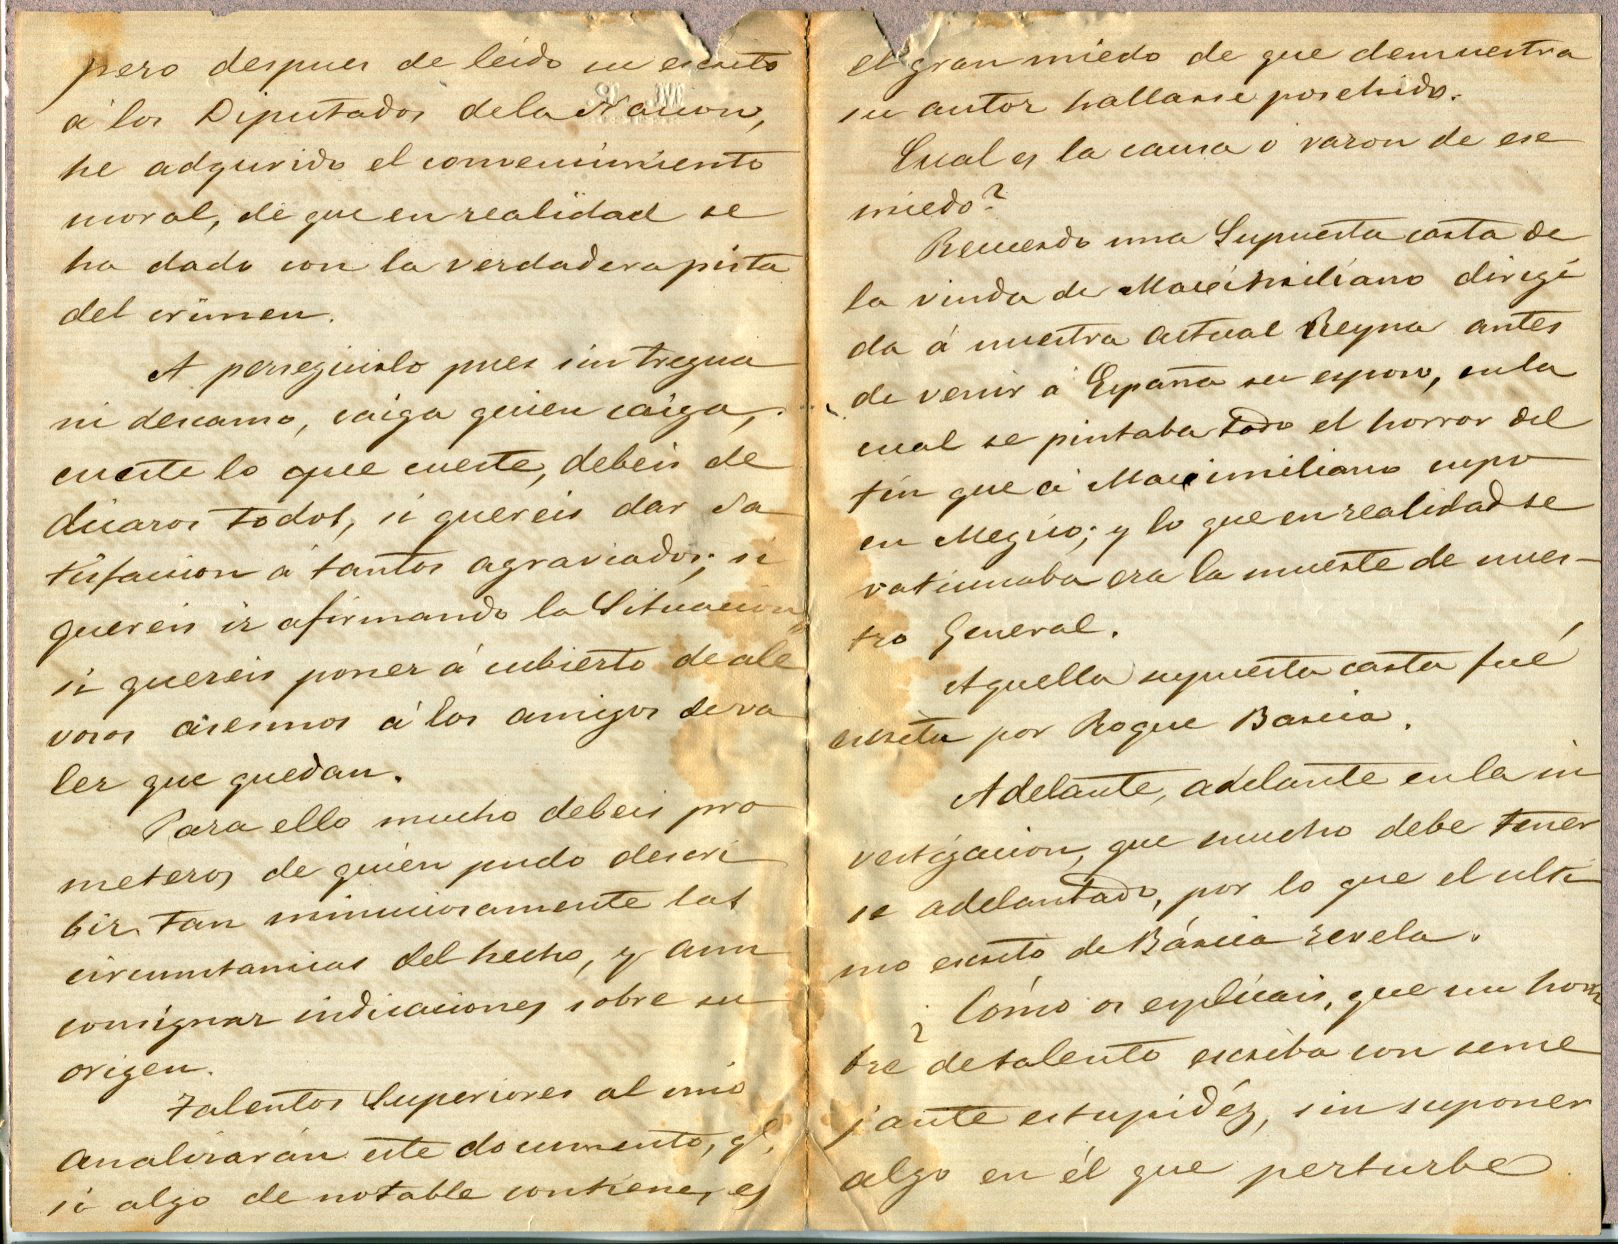 pero despues de leido su escrito
á los Diputados dela Nacion,
he adquirido el convencimiento
moral, de que en realidad se
ha dado con la verdadera pista
del crimen.
A perseguirlo pues sin tregua
ni descanso, caiga quien caiga,
cueste lo que cueste, debeis de
dicaros todos, si quereis dar sa
tisfaccion á tantos agraviados; si
quereis ir afirmando la Situacion,
si quereis poner á cubierto de ale
vosos asesinos á los amigos de va
ler que quedan.
Para ello mucho debeis pro
meteros de quien pudo descri
bir tan minuciosamente las
circunstancias del hecho, y aun
consignar indicaciones sobre su
origen.
Talentos Superiores al mio
analizarán este documento, qe.
si algo de notable contiene, es
el gran miedo de que demuestra
su autor hallarse posehido.
Cual es la causa ó razon de ese
miedo?
Recuerdo una Supuesta carta de
la viuda de Maximiliano dirigi
da á nuestra actual Reyna antes
de venir á España su esposo, enla
cual se pintaba todo el horror del
fin que á Maximiliano cupo
en Megico; y lo que en realidad se
vaticinaba era la muerte de nues-
tro General.
Aquella supuesta carta fué
escrita por Roque Barcia.
Adelante, adelante enla in
vestigacion, que mucho debe tener
se adelantado, por lo que el ulti
mo escrito de Bárcia revela.
¿Cómo os esplicais, que un hom
bre de talento escriba con seme
jante estupidéz, sin suponer
algo en él que perturbe